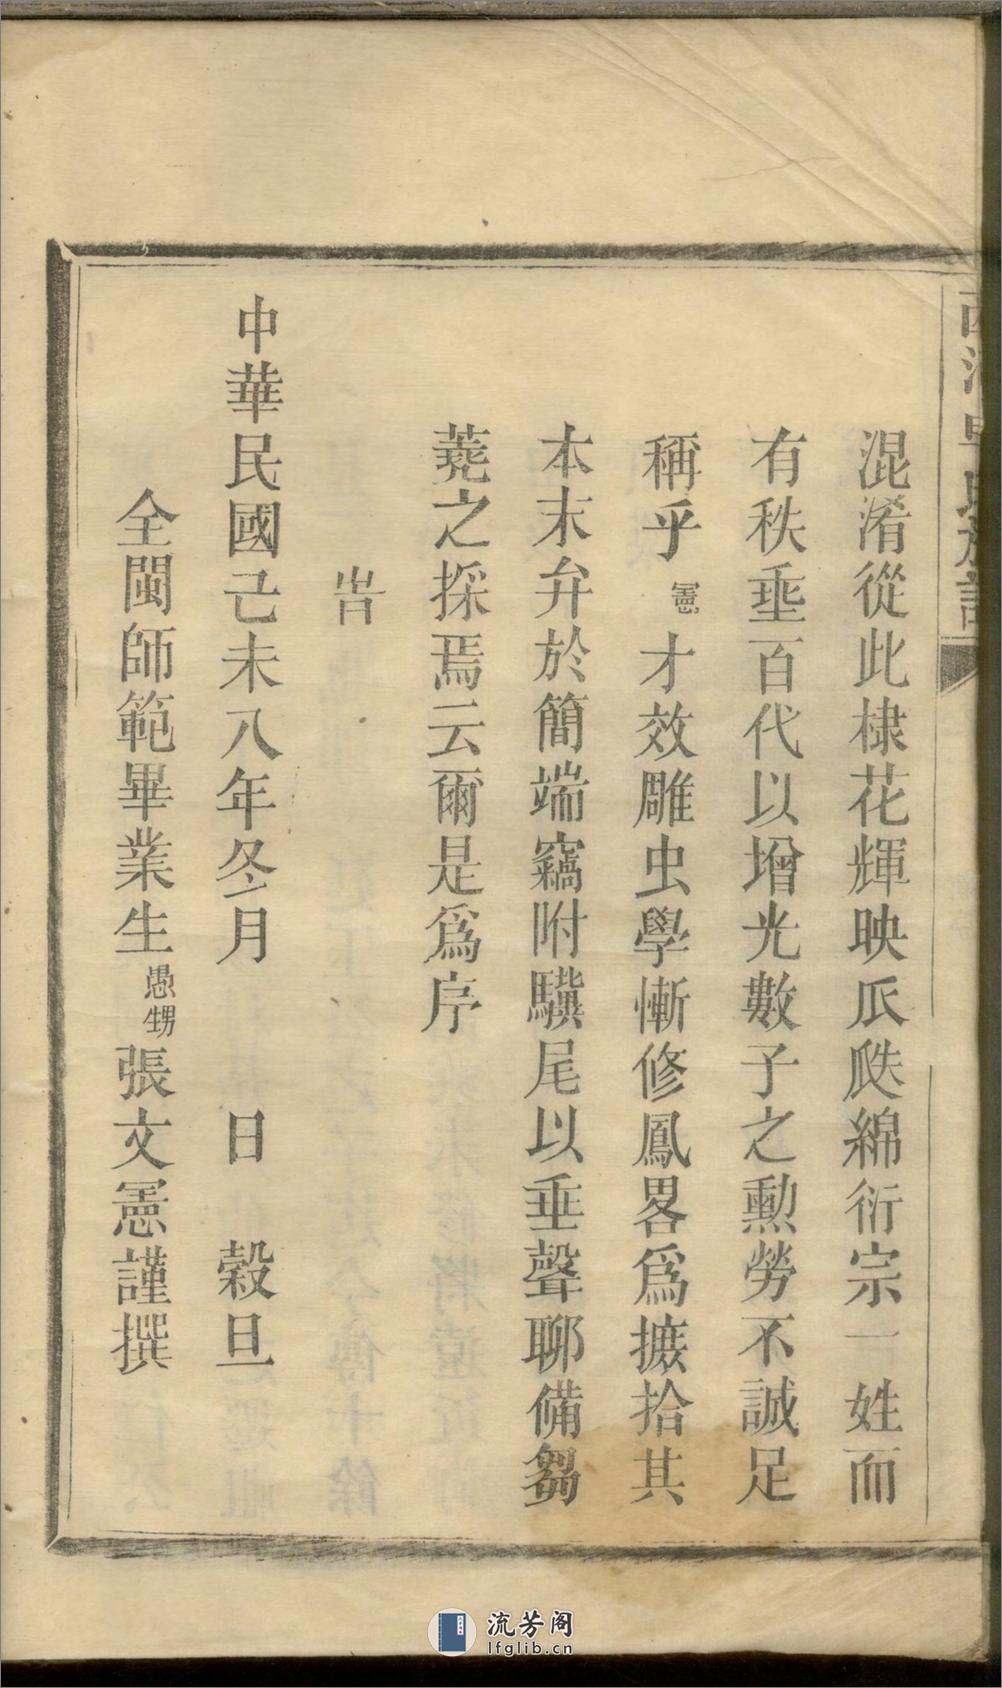 混淆從此棣花輝映瓜瓞綿衍宗一姓而
有秩垂百代以增光數子之勲勞不誠足
稱乎憲才效雕虫學慚修鳳畧爲摭拾其
本末弁於簡端竊附驥尾以垂聲聊備芻
蕘之採焉云爾是爲序
旹
中華民國己未八年冬月 日 穀旦
仝閩師範畢業生愚甥張文憲謹撰
流芳阁
lfglib.cn